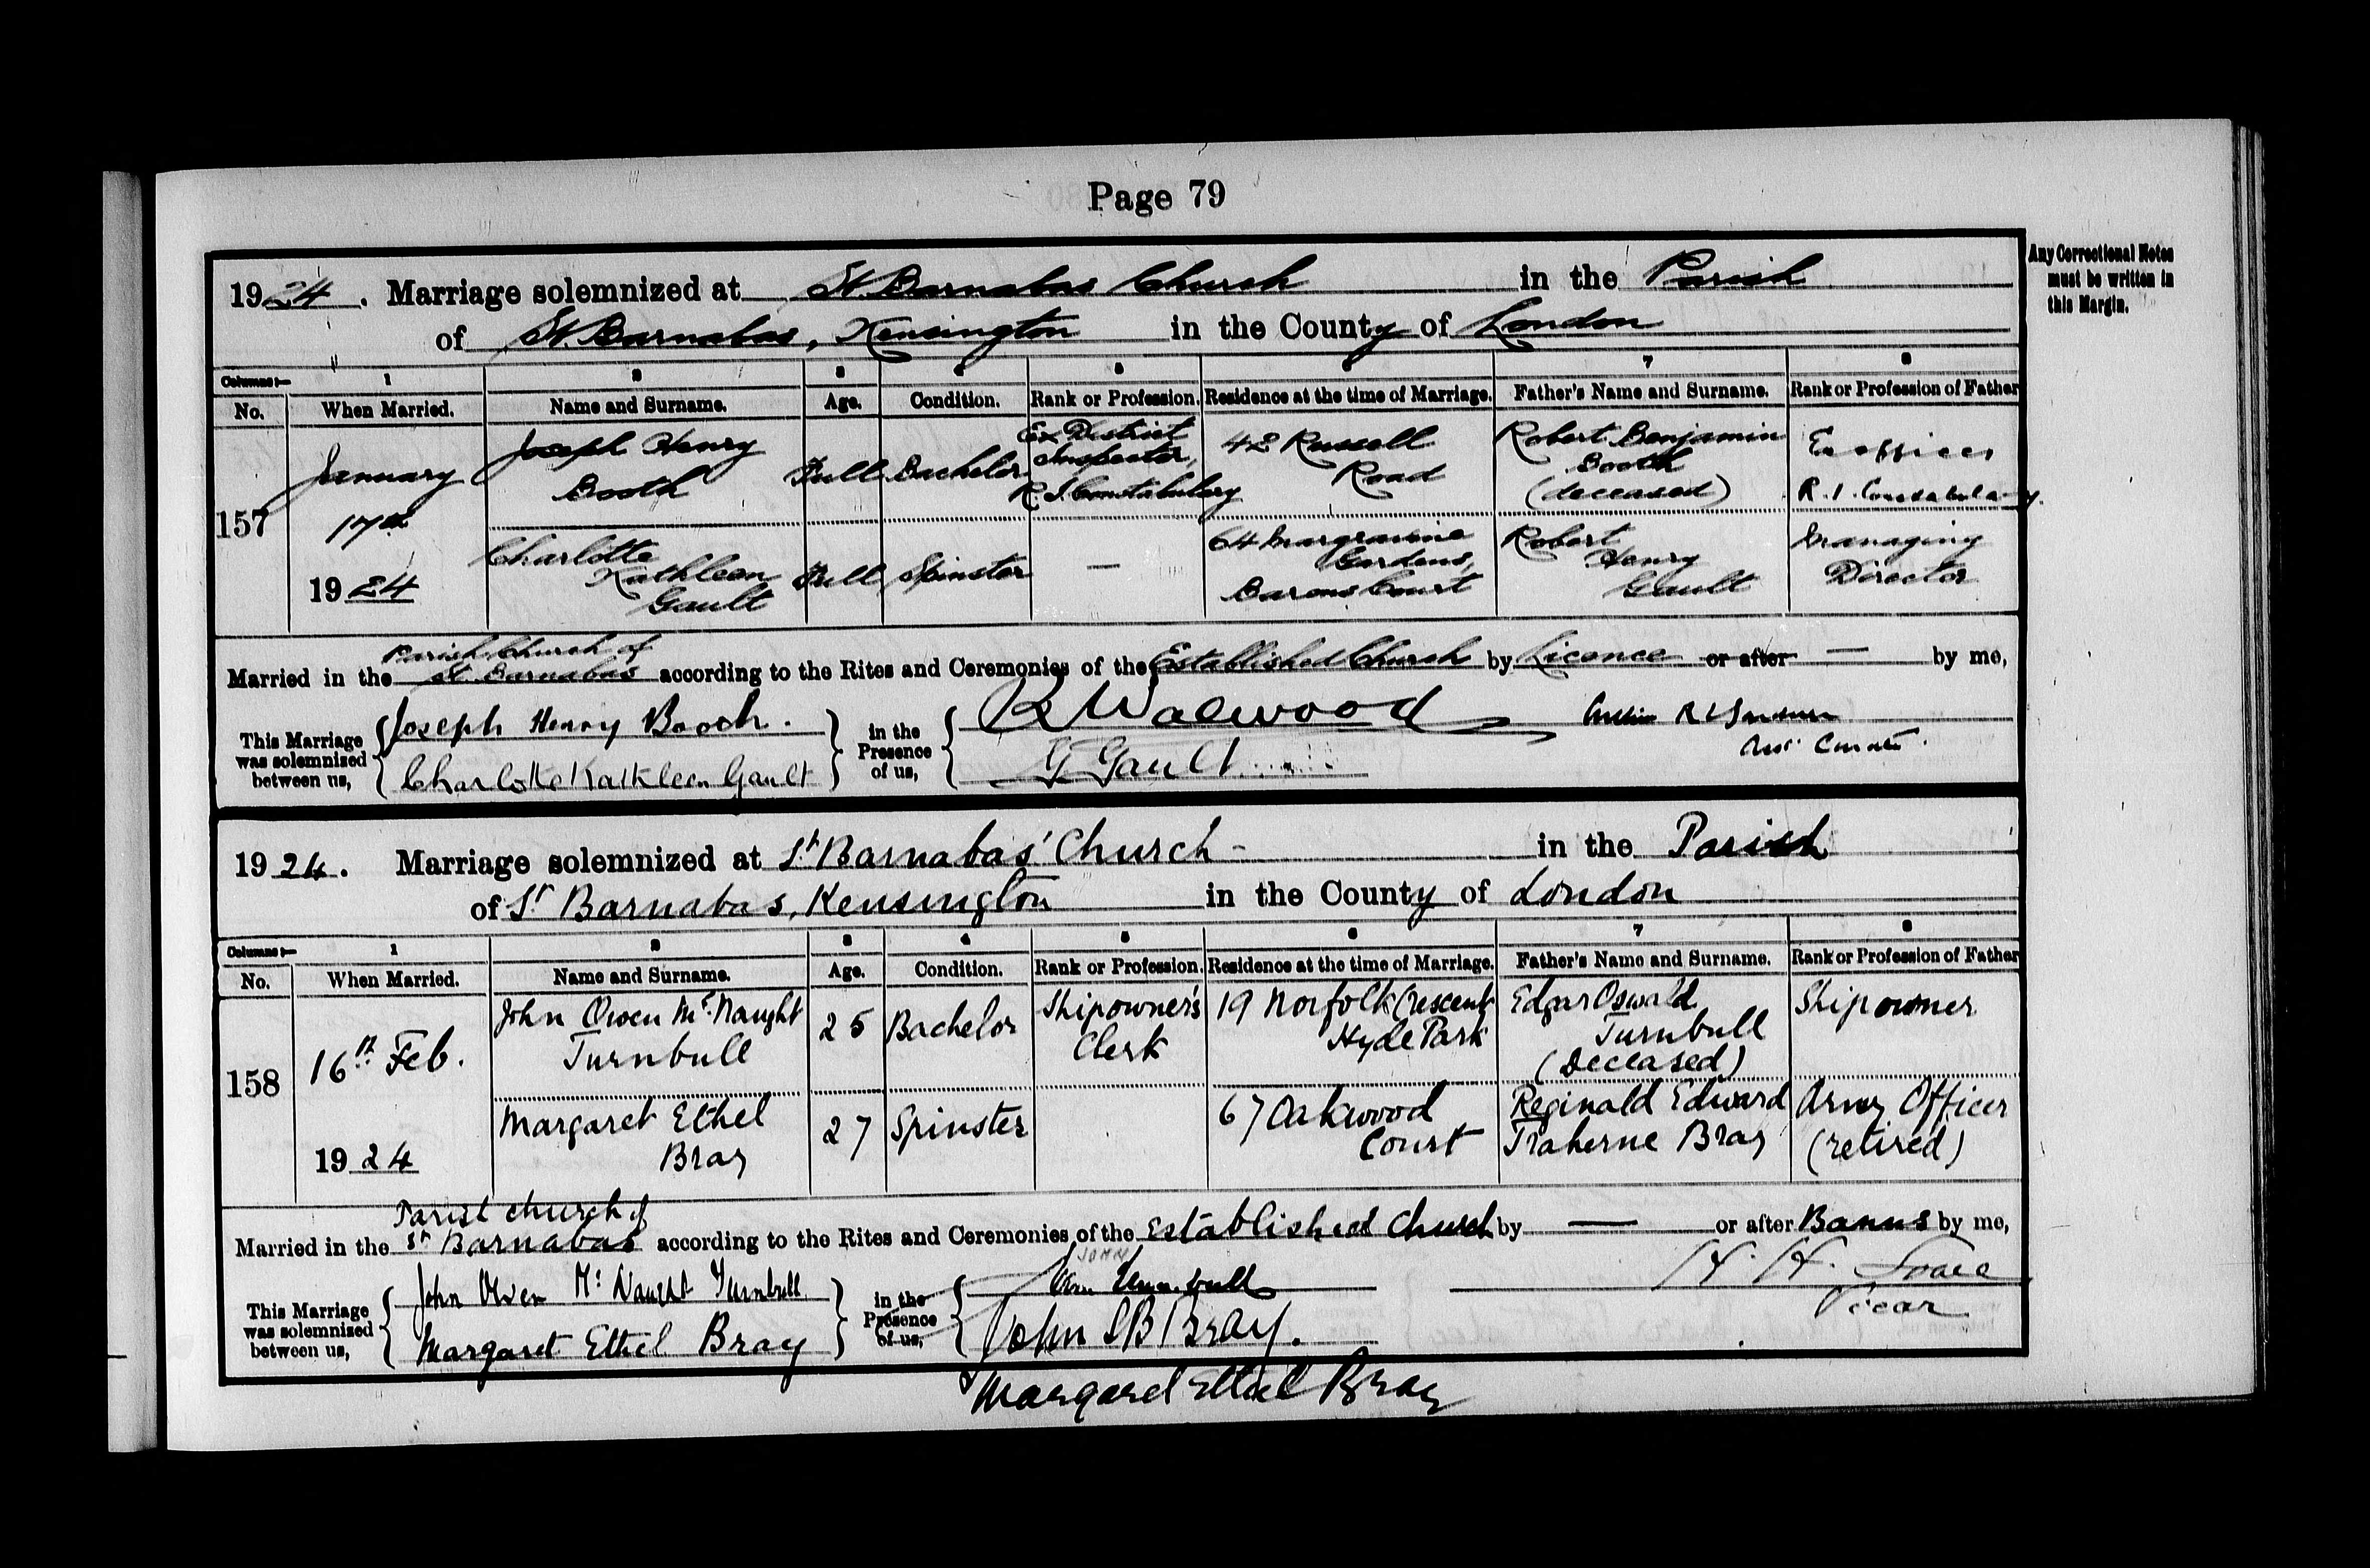 Page 79
Any Correctional Notes
must be written in
this Margin.
1924. Marriage solemnized at St. Barnabas Church in the Parish
of St. Barnabas, Kensington in the County of London
Columns:— 1 2 3 4 5 6 7 8
No. When Married. Name and Surname. Age. Condition. Rank or Profession. Residence at the time of Marriage. Father's Name and Surname. Rank or Profession of Father
157 January 17th 1924 Joseph Henry Booth Full Bachelor Ex District Inspector, R. I. Constabulary 42 Russell Road Robert Benjamin Booth (deceased) Ex officer R. I. Constabulary.
Charlotte Kathleen Gault Full Spinster — 64 Margravine Gardens, Barons Court Robert Henry Gault Managing Director
Married in the Parish Church of St. Barnabas according to the Rites and Ceremonies of the Established Church by Licence or after — by me,
This Marriage was solemnized between us, Joseph Henry Booth. in the Presence of us,
Charlotte Kathleen Gault G Gault
1924. Marriage solemnized at St Barnabas' Church - in the Parish
of St Barnabas, Kensington in the County of London
Columns:— 1 2 3 4 5 6 7 8
No. When Married. Name and Surname. Age. Condition. Rank or Profession. Residence at the time of Marriage. Father's Name and Surname. Rank or Profession of Father
158 16th Feb. 1924 John Owen McNaught Turnbull 25 Bachelor Shipowner's Clerk 19 Norfolk Crescent Hyde Park Edgar Oswald Turnbull (Deceased) Shipowner
Margaret Ethel Bray 27 Spinster 67 Oakwood Court Reginald Edward Traherne Bray Army Officer (retired)
Married in the Parish church of St Barnabas according to the Rites and Ceremonies of the Established Church by — or after Banns by me,
This Marriage was solemnized between us, John Owen McNaught Turnbull in the Presence of us, John Turnbull H. H.
Margaret Ethel Bray John S B Bray. Vicar
Margaret Ethel Bray